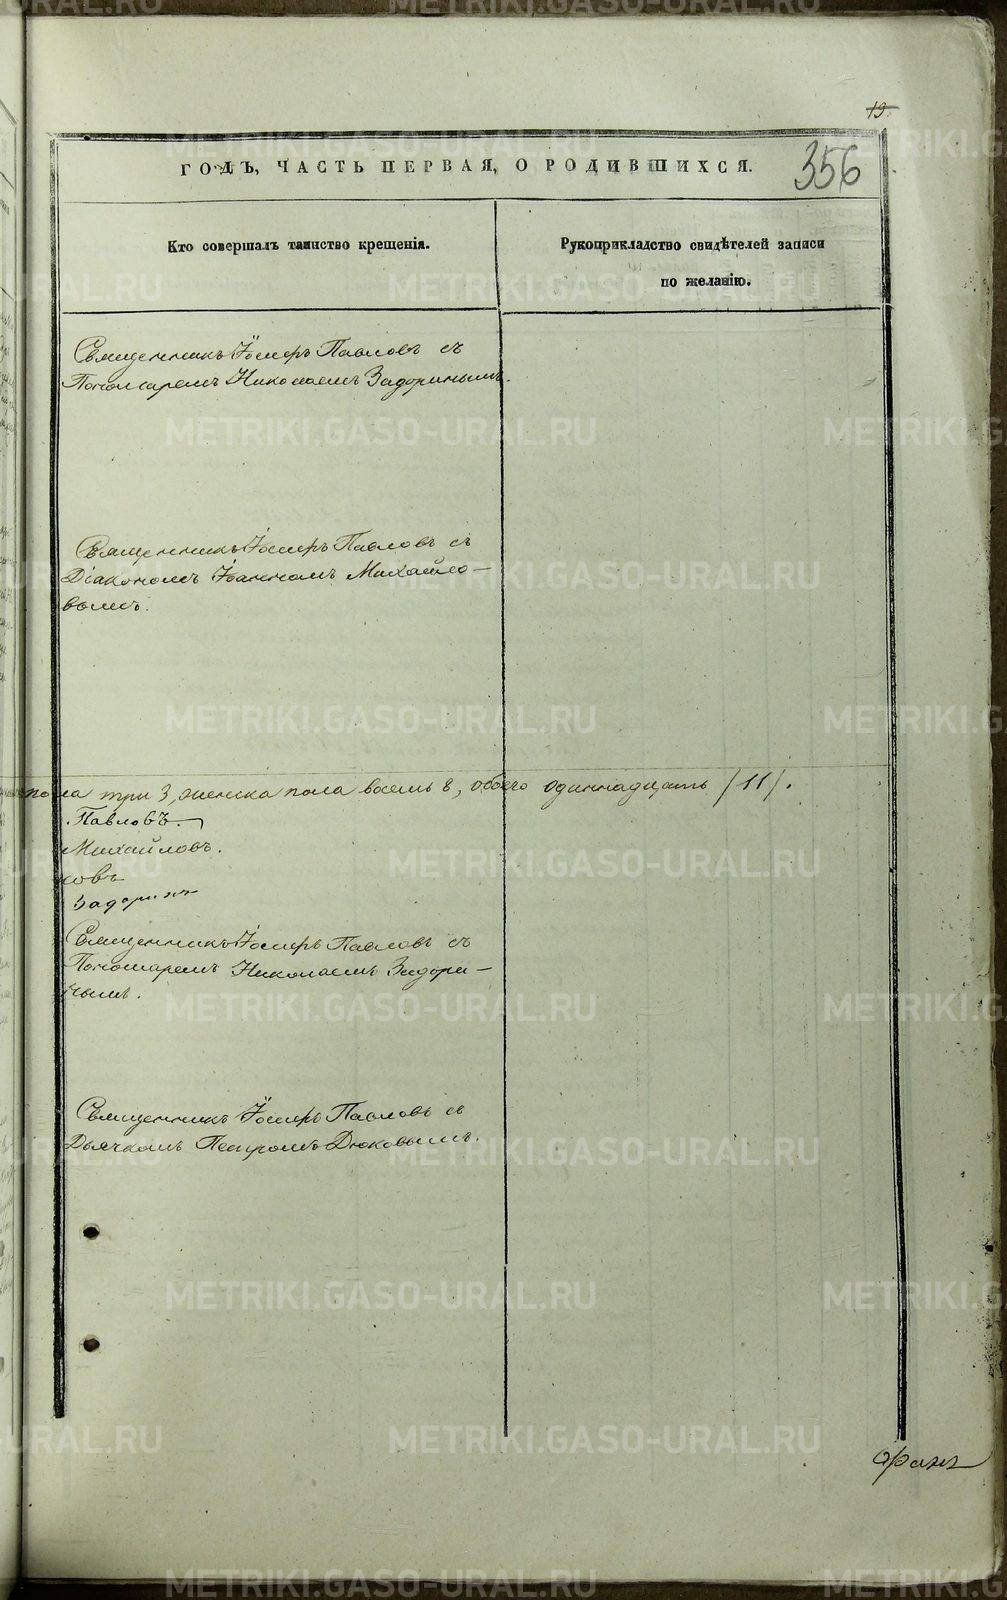 19.
356
ГОДЪ, ЧАСТЬ ПЕРВАЯ, О РОДИВШИХСЯ.
Кто совершалъ таинство крещенія.
Рукоприкладство свидѣтелей записи
по желанію.
Священникъ Іосифъ Павловъ съ
Пономаремъ Николаемъ Задоринымъ.
Священникъ Іосифъ Павловъ съ
Діакономъ Іоанномъ Михайло-
вымъ.
пола три 3, женска пола восемь 8, обоего одиннадцать /11/.
Павловъ.
Михайловъ.
ковъ
Задоринъ
Священникъ Іосифъ Павловъ съ
Пономаремъ Николаемъ Задори-
нымъ.
Священникъ Іосифъ Павловъ съ
Дьячкомъ Петромъ Дюковымъ.
METRIKI.GASO-URAL.RU